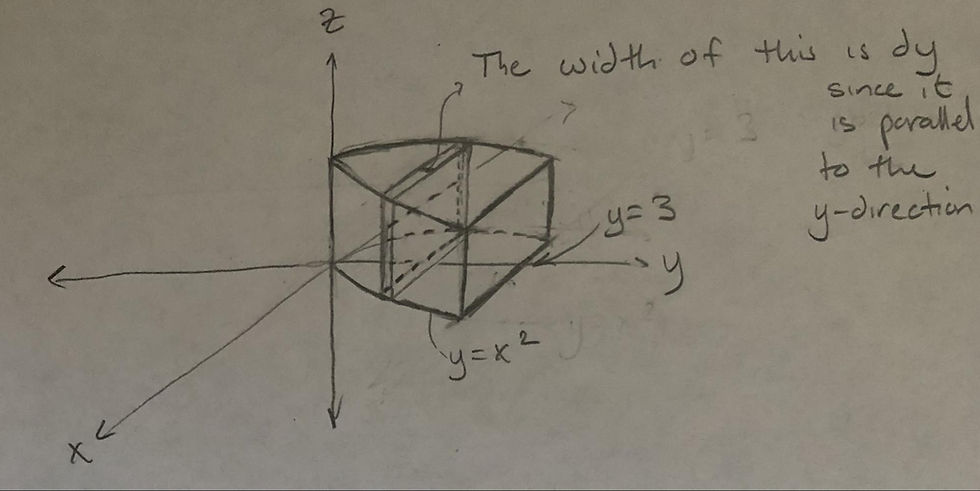 z
The width of this is dy
since it
is parallel
to the
y-direction
y=3
y
y=x²
x